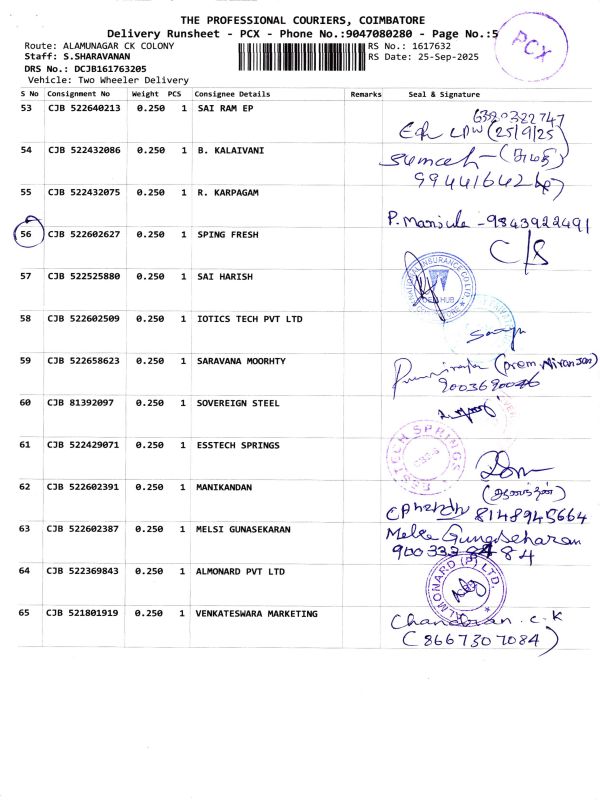 THE PROFESSIONAL COURIERS, COIMBATORE
Delivery Runsheet - PCX - Phone No.:9047080280 - Page No.:5
PCX
Route: ALAMUNAGAR CK COLONY
RS No.: 1617632
Staff: S.SHARAVANAN
RS Date: 25-Sep-2025
DRS No.: DCJB161763205
Vehicle: Two Wheeler Delivery
S No Consignment No Weight PCS Consignee Details Remarks Seal & Signature
53 CJB 522640213 0.250 1 SAI RAM EP
6380322747
(25/9/25)
54 CJB 522432086 0.250 1 B. KALAIVANI
55 CJB 522432075 0.250 1 R. KARPAGAM
P. - 9843922491
56 CJB 522602627 0.250 1 SPING FRESH
C/S
57 CJB 522525880 0.250 1 SAI HARISH
INSURANCE CO LTD.
HUB
58 CJB 522602509 0.250 1 IOTICS TECH PVT LTD
59 CJB 522658623 0.250 1 SARAVANA MOORHTY
(prem Niranjan)
60 CJB 81392097 0.250 1 SOVEREIGN STEEL
61 CJB 522429071 0.250 1 ESSTECH SPRINGS
ESSTECH SPRINGS
62 CJB 522602391 0.250 1 MANIKANDAN
8148945664
63 CJB 522602387 0.250 1 MELSI GUNASEKARAN
Gunasekaran
64 CJB 522369843 0.250 1 ALMONARD PVT LTD
ALMONARD (P) LTD.
65 CJB 521801919 0.250 1 VENKATESWARA MARKETING
Chandran . C . K
(8667307084)